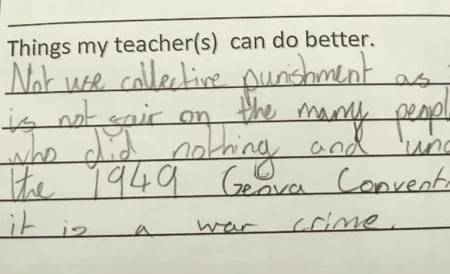 Things my teacher(s) can do better.
Not use collective punishment as
is not fair on the many peopl
who did nothing and und
the 1949 Genva Conventi
it is a war crime.